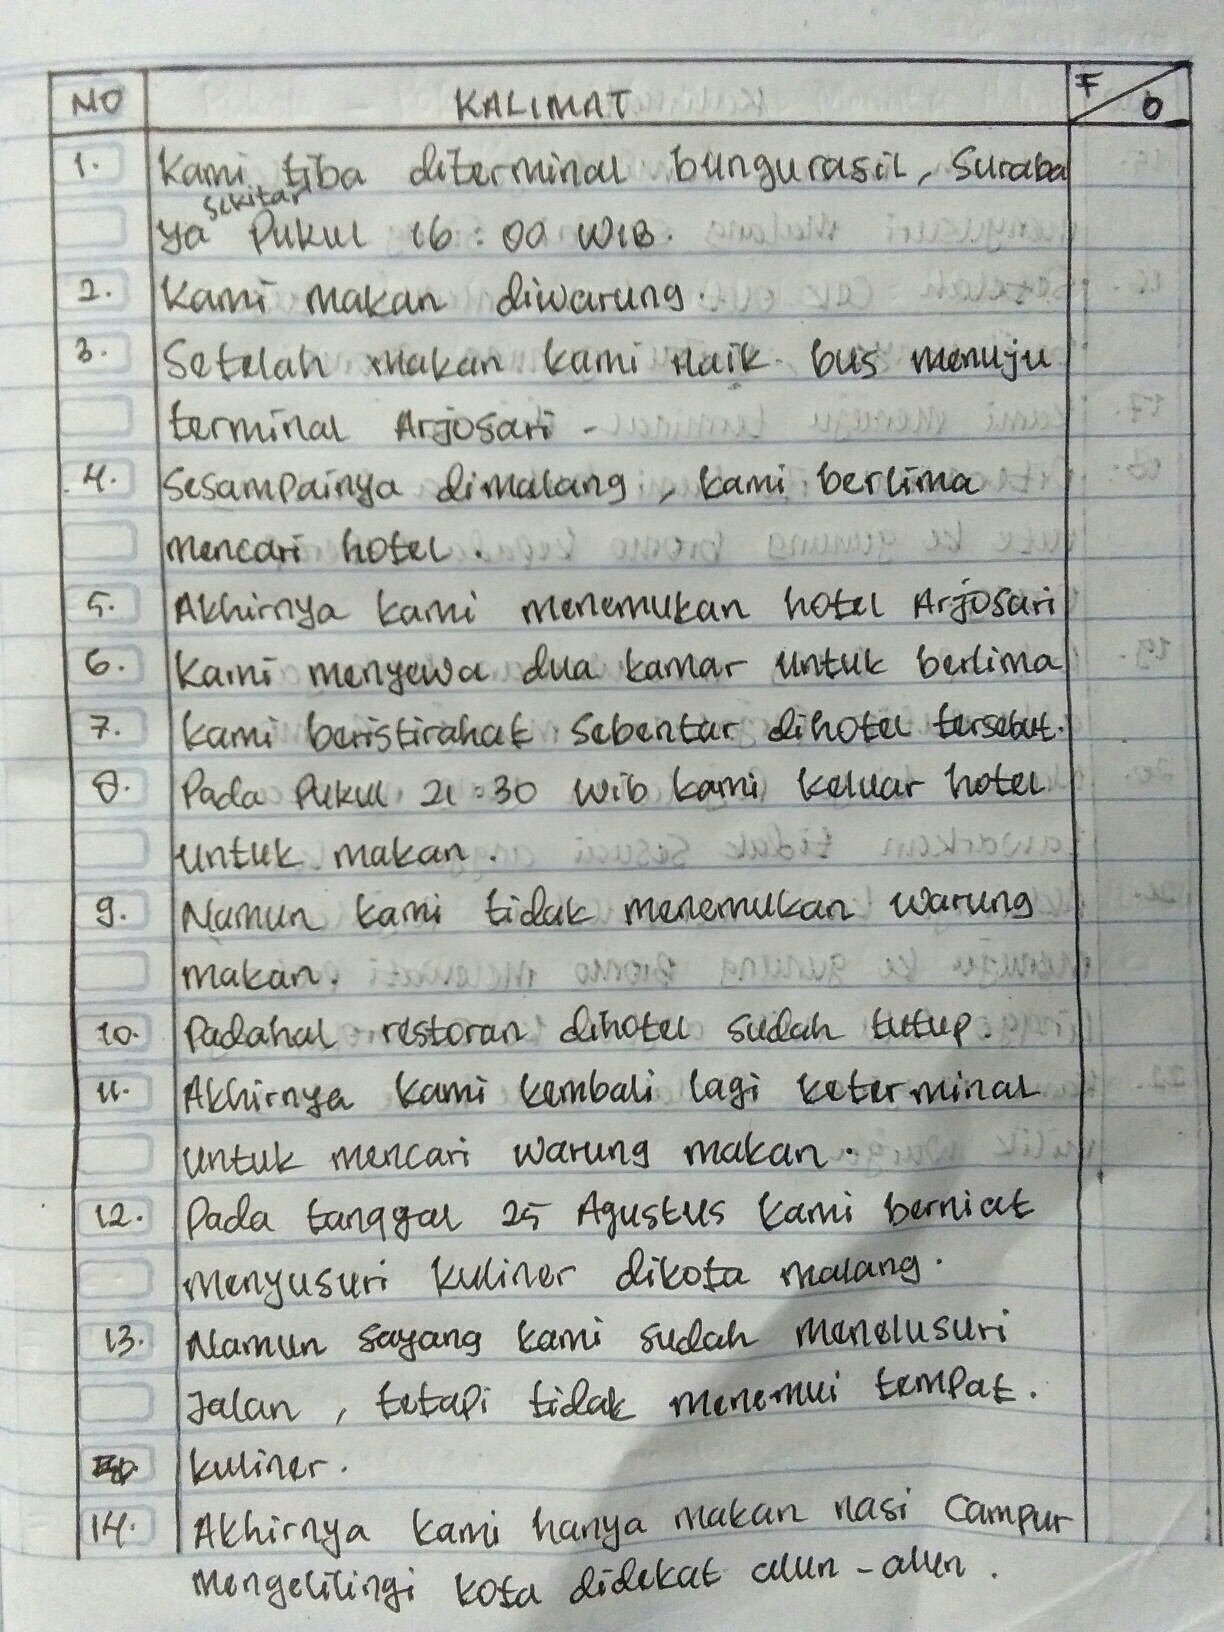 NO KALIMAT F/O
1. Kami tiba diterminal bungurasil, Suraba
ya sekitar Pukul 16:00 WIB.
2. Kami makan diwarung.
3. Setelah makan kami naik bus menuju
terminal Arjosari -
4. Sesampainya dimalang, kami berlima
mencari hotel.
5. Akhirnya kami menemukan hotel Arjosari
6. Kami menyewa dua kamar untuk berlima
7. kami beristirahat sebentar dihotel tersebut.
8. Pada Pukul 21:30 Wib kami keluar hotel
untuk makan.
9. Namun kami tidak menemukan warung
makan.
10. Padahal restoran dihotel sudah tutup.
11. Akhirnya kami kembali lagi keterminal
untuk mencari warung makan.
12. Pada tanggal 25 Agustus kami berniat
menyusuri kuliner dikota malang.
13. Namun sayang kami sudah menelusuri
Jalan, tetapi tidak menemui tempat.
kuliner.
14. Akhirnya kami hanya makan nasi Campur
mengelilingi kota didekat alun-alun.